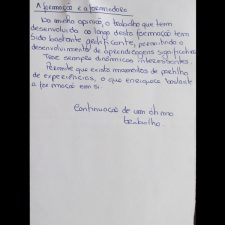 A formação e a formadora
Na minha opinião, o trabalho que tem
desenvolvido ao longo desta formação tem
sido bastante gratificante, permitindo o
desenvolvimento de aprendizagens significativas.
Teve sempre dinâmicas interessantes.
Permite que exista momentos de partilha
de experiências, o que enriquece bastante
a formação em si.
Continuação de um ótimo
trabalho.